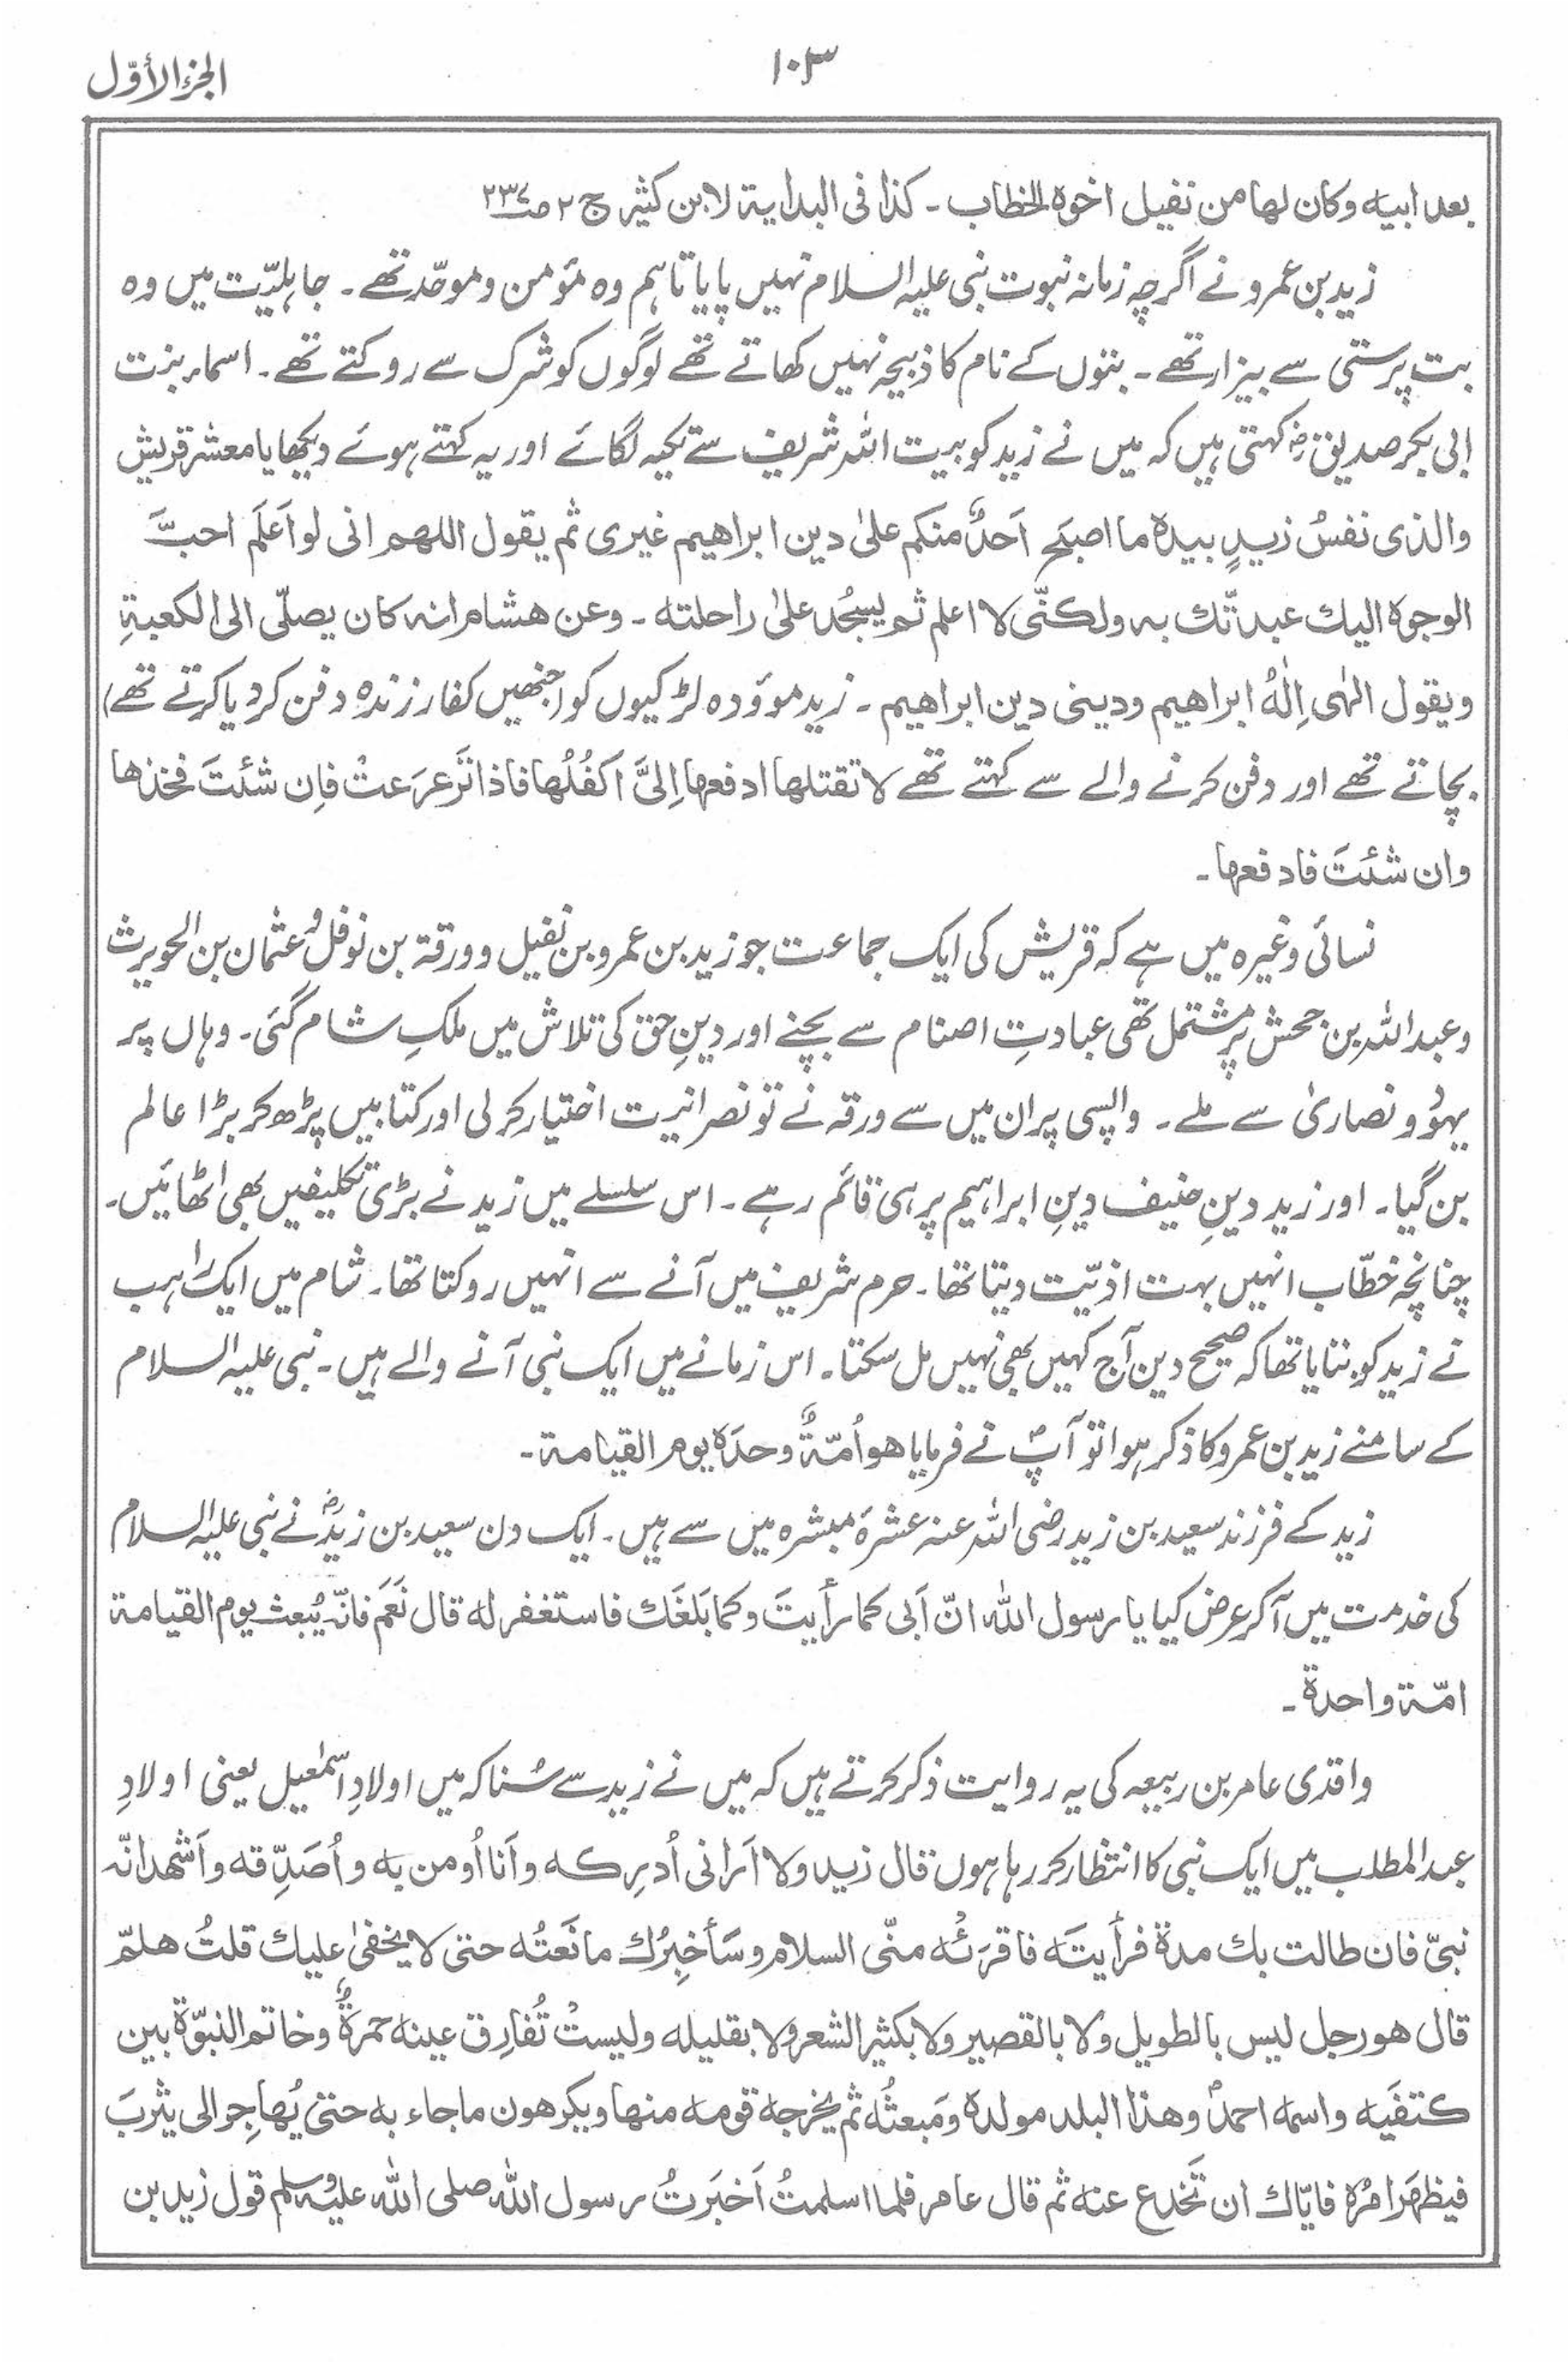 ١٠٣
الجزء الأوّل
بعد ابیه وکان لها من نفیل اخوه الخطاب ۔ کذا فی البدایة لابن کثیر ج ۲ ص۲۳۷
زید بن عمرو نے اگرچہ زمانہ نبوت نبی علیہ السلام نہیں پایا تاہم وہ مؤمن وموحّد تھے ۔ جاہلیّت میں وہ
بت پرستی سے بیزار تھے ۔ بتوں کے نام کا ذبیحہ نہیں کھاتے تھے لوگوں کو شرک سے روکتے تھے ۔ اسماء بنت
ابی بکر صدیق رضؓ کہتی ہیں کہ میں نے زید کو بیت اللہ شریف سے تکیہ لگائے اور یہ کہتے ہوئے دیکھا یا معشر قریش
والذی نفسُ زیدٍ بیدہ ما اصبَح اَحدٌ منکم علیٰ دین ابراهیم غیری ثم یقول اللهم انی لو اَعلَم احبَّ
الوجوہ الیك عبدتّك به ولکنّی لا اعلم ثم یسجُد علیٰ راحلته ۔ وعن هشام انه کان یصلّی الی الکعبةِ
ویقول الٰهی اِلٰهُ ابراهیم ودینی دین ابراهیم ۔ زید موؤدہ لڑکیوں کو (جنھیں کفار زندہ دفن کر دیا کرتے تھے)
بچاتے تھے اور دفن کرنے والے سے کہتے تھے لا تقتلها ادفعها اِلیَّ اَکفُلُها فاذا تَرعرَعتْ فاِن شئتَ فخذها
وان شئتَ فادفعها ۔
نسائی وغیرہ میں ہے کہ قریش کی ایک جماعت جو زید بن عمرو بن نفیل و ورقۃ بن نوفل و عثمان بن الحویرث
وعبداللہ بن جحش پر مشتمل تھی عبادتِ اصنام سے بچنے اور دینِ حق کی تلاش میں ملکِ شام گئی ۔ وہاں پر
یہود و نصاریٰ سے ملے ۔ واپسی پر ان میں سے ورقہ نے تو نصرانیت اختیار کر لی اور کتابیں پڑھ کر بڑا عالم
بن گیا ۔ اور زید دینِ حنیف دینِ ابراہیم پر ہی قائم رہے ۔ اس سلسلے میں زید نے بڑی تکلیفیں بھی اٹھائیں ۔
چنانچہ خطّاب انہیں بہت اذیّت دیتا تھا ۔ حرم شریف میں آنے سے انہیں روکتا تھا ۔ شام میں ایک راہب
نے زید کو بتایا تھا کہ صحیح دین آج کہیں بھی نہیں مل سکتا ۔ اس زمانے میں ایک نبی آنے والے ہیں ۔ نبی علیہ السلام
کے سامنے زید بن عمرو کا ذکر ہوا تو آپؐ نے فرمایا هو اُمّةٌ وحدَہ یوم القیامة ۔
زید کے فرزند سعید بن زید رضی اللہ عنہ عشرۂ مبشرہ میں سے ہیں ۔ ایک دن سعید بن زیدؓ نے نبی علیہ السلام
کی خدمت میں آکر عرض کیا یا رسول الله انّ اَبی کما رأیتَ وکما بَلغَك فاستغفر له قال نَعَم فانّه یُبعث یوم القیامة
امّة واحدة ۔
واقدی عامر بن ربیعہ کی یہ روایت ذکر کرتے ہیں کہ میں نے زید سے سُنا کہ میں اولادِ اسمٰعیل یعنی اولادِ
عبدالمطلب میں ایک نبی کا انتظار کر رہا ہوں قال زید ولا اَرانی اُدرِکه واَنا اُومن به واُصَدِّقه واَشهد انّه
نبیّ فان طالت بك مدة فرأیتَه فاقرَئْه منّی السلام وسَأُخبِرُك ما نَعتُه حتی لا یخفیٰ علیك قلتُ هلمّ
قال هو رجل لیس بالطویل ولا بالقصیر ولا بکثیر الشعر ولا بقلیله ولیستْ تُفارِق عینه حمرةٌ وخاتم النبوّة بین
کتفَیه واسمه احمدؐ وهذا البلد مولدہ ومَبعثُه ثم یخرجه قومه منها ویکرهون ما جاء به حتی یُهاجِر الی یثربَ
فیظهَر امرُہ فایّاك ان تَخدع عنه ثم قال عامر فلما اسلمتُ اَخبَرتُ رسول الله صلی الله علیه وسلم قول زید بن